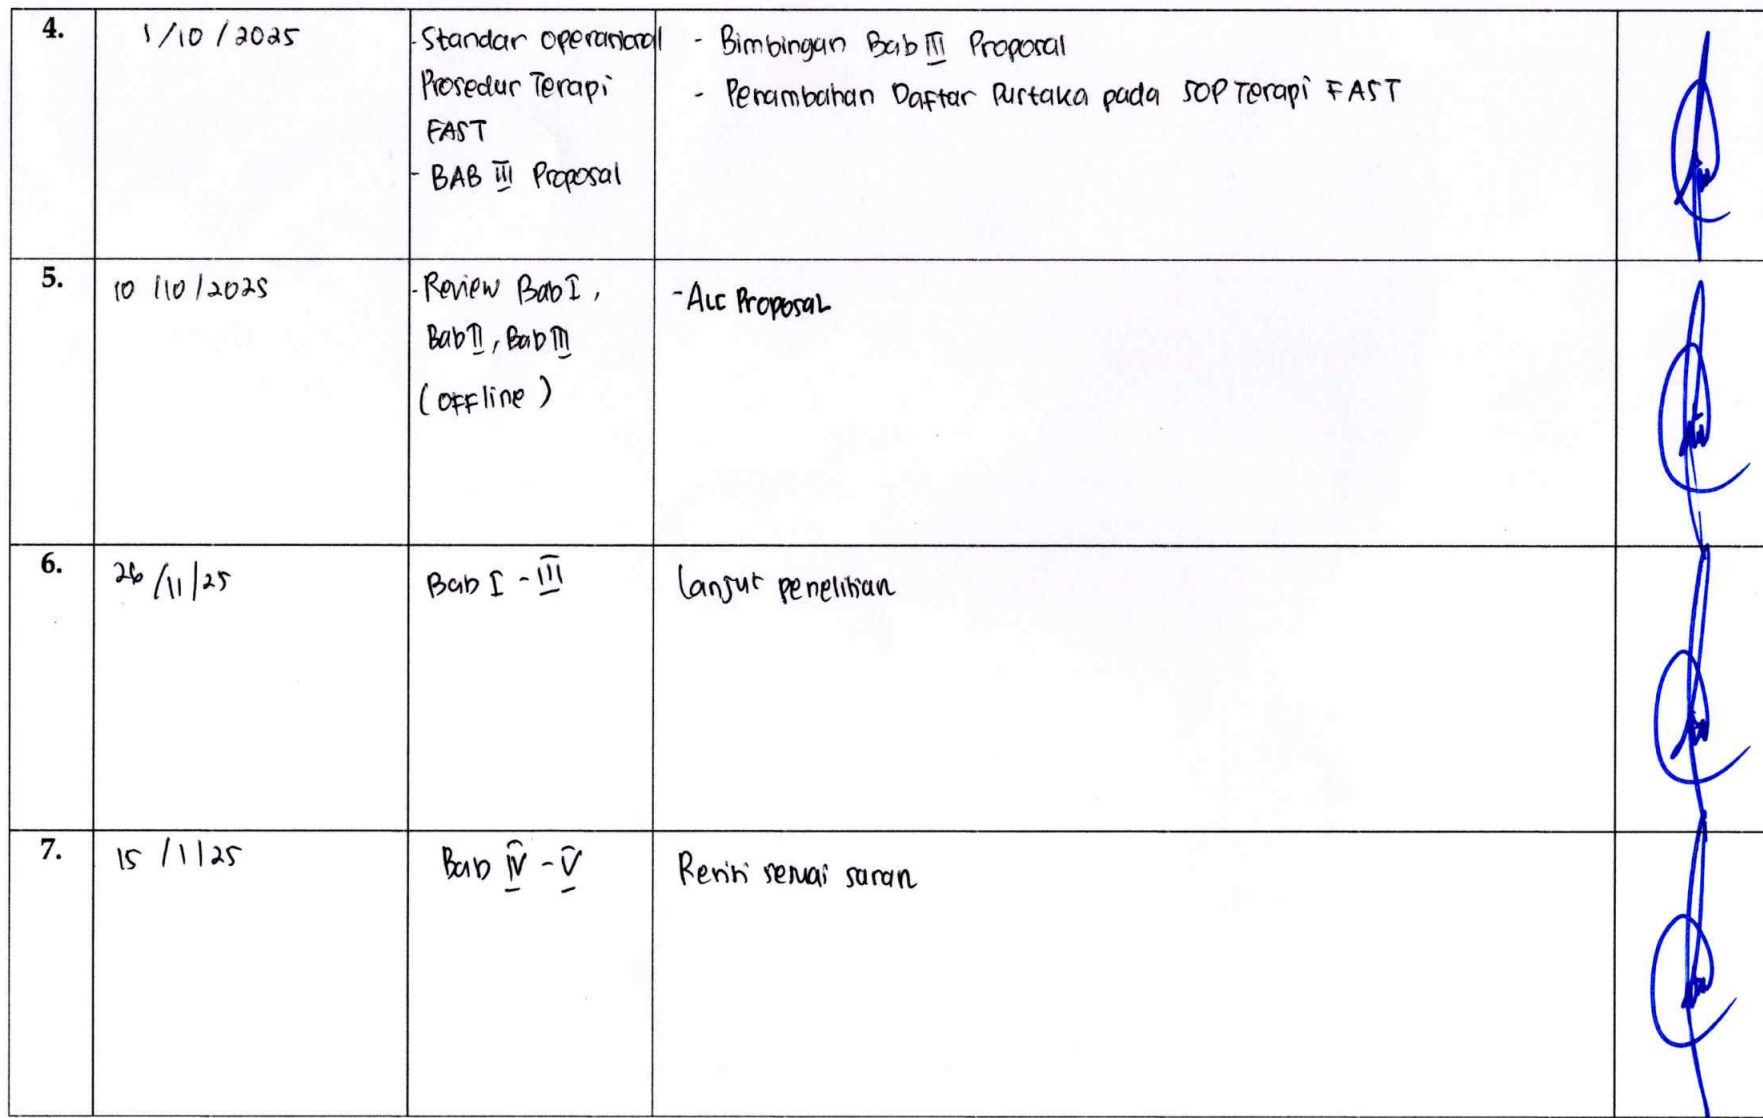 4.
1/10/2025
- Standar operasional
Prosedur Terapi
FAST
- BAB III Proposal
- Bimbingan Bab III Proposal
- Penambahan Daftar Pustaka pada SOP Terapi FAST
5.
10/10/2025
- Review Bab I,
Bab II, Bab III
(OFFline)
- Acc Proposal
6.
26/11/25
Bab I - III
Lanjut penelitian
7.
15/1/25
Bab IV - V
Revisi sesuai saran